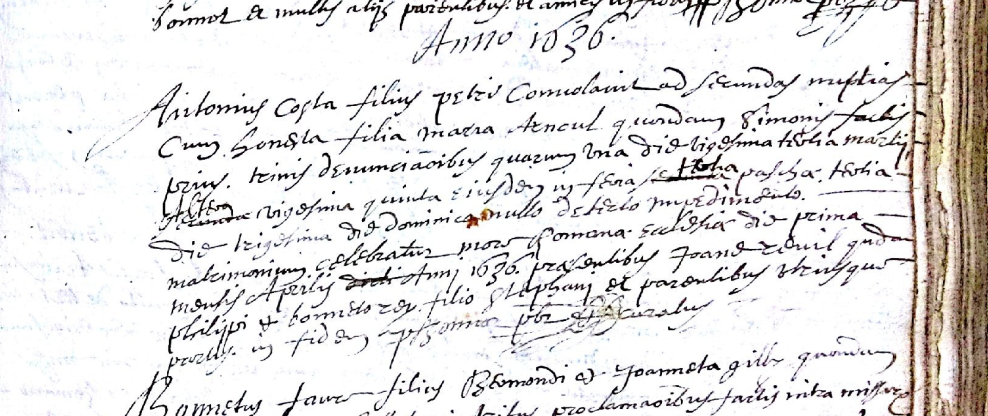 et multis alijs parentibus et amicis in
Anno 1636.
Antonius Costa filius petri Convolavit ad secundas nuptias
Cum honesta filia maria Arnoul quondam Simonis factis
prius trinis denunciaoibus quarum una die vigesima tertia martij
altera vigesima quinta eiusdem in feria tertia pascha tertia
die trigesima die dominica nullo detecto impedimento.
matrimonium celebratur more Romana Ecclesia die prima
mensis Aprilis Anni 1636. praesentibus Joane quodam
philippi et bonneto rey filio Stephani et parentibus utriusque
partis in fidem pbr et Curatus
Bonnetus faure filius Reomondi et Joanneta gille quondam
proclamaoibus factis intra missar